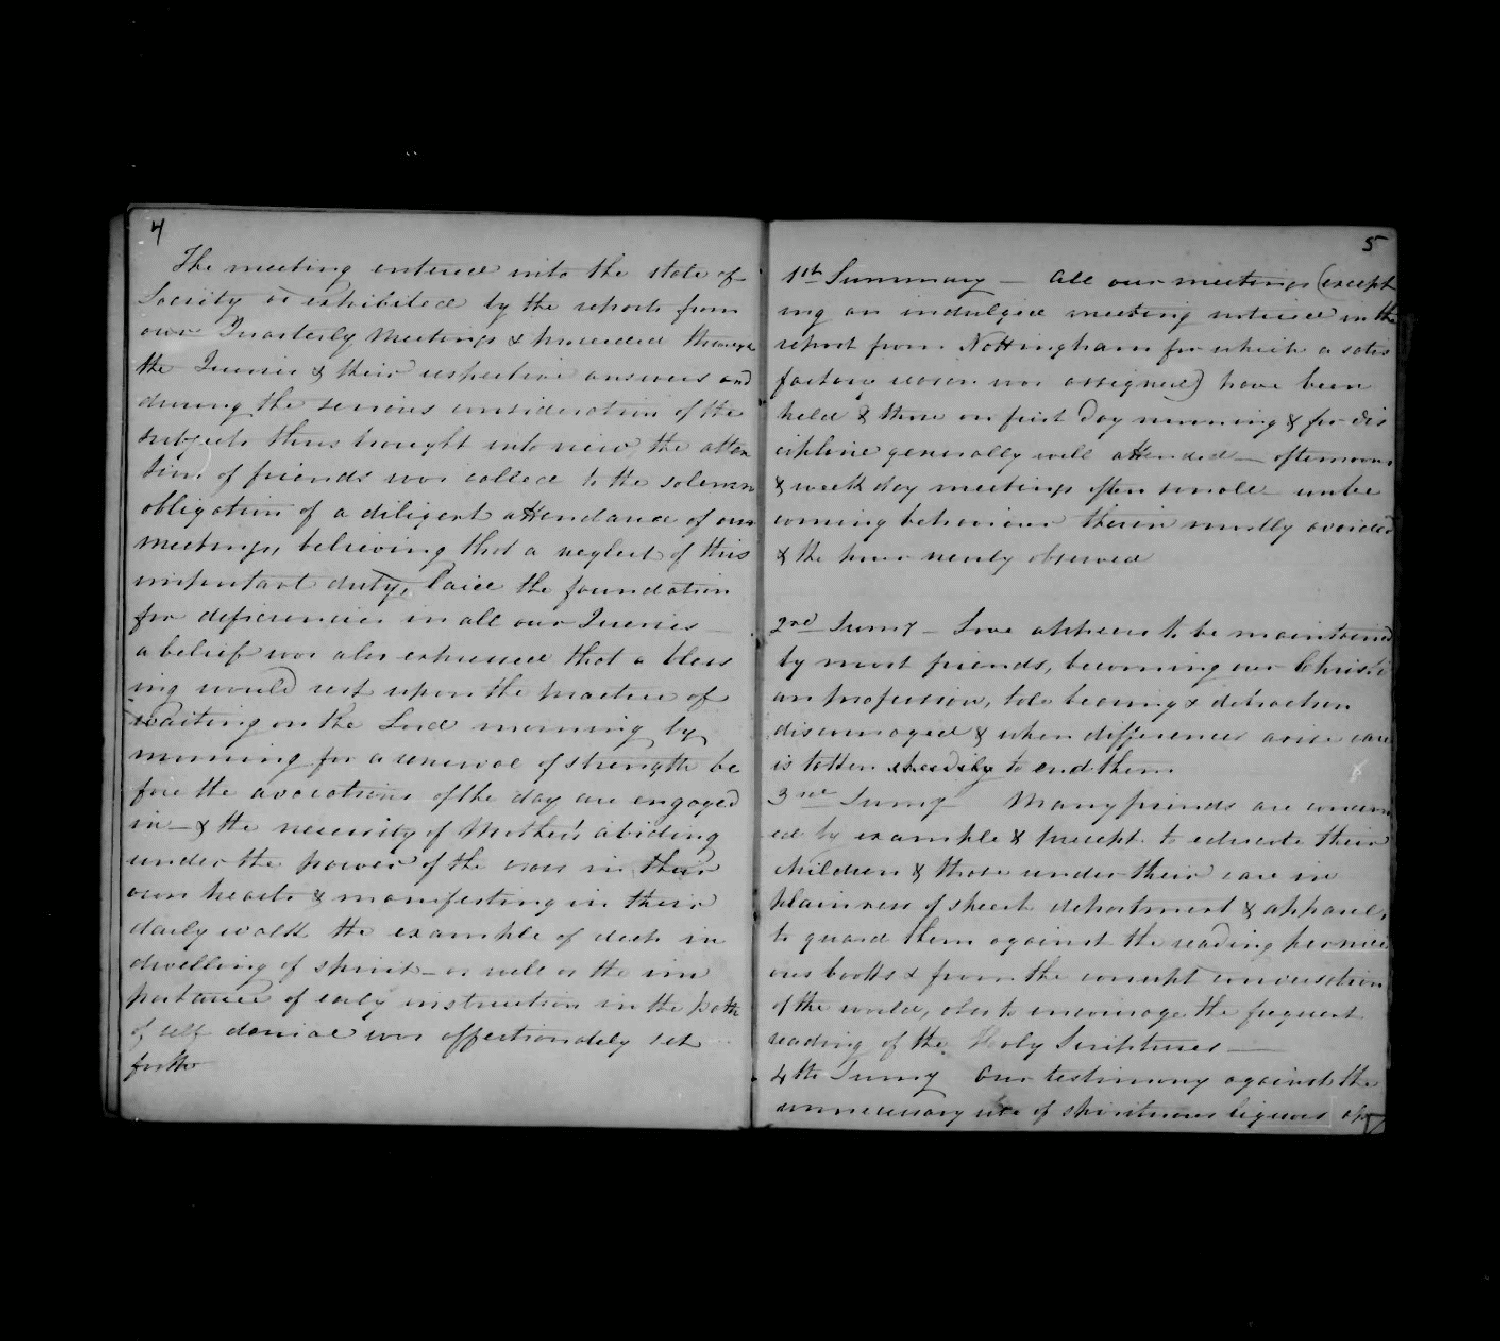 4
The meeting entered into the state of
Society as exhibited by the reports from
our Quarterly Meetings & proceeded through
the Queries & their respective answers and
during the serious consideration of the
subjects thus brought into view, the atten
tion of friends was called to the solemn
obligation of a diligent attendance of our
meetings, believing that a neglect of this
important duty, laid the foundation
for deficiencies in all our Queries
a belief was also expressed that a bless
ing would rest upon the practice of
waiting on the Lord morning by
morning for a renewal of strength be
fore the avocations of the day are engaged
in — & the necessity of Mothers abiding
under the power of the cross in their
own hearts & manifesting in their
daily walk the example of deep in
dwelling of spirit — as well as the im
portance of early instruction in the path
of self denial was affectionately set
forth
5
1st Summary — All our meetings (except
ing an indulged meeting noticed in the
report from Nottingham for which a satis
factory reason was assigned) have been
held & those on first day morning & for dis
cipline generally well attended — afternoon
& week day meetings often small — unbe
coming behaviour therein mostly avoided
& the hour nearly observed
2nd Sumy — Love appears to be maintained
by most friends, becoming our Christi
an profession, tale bearing & detraction
discouraged & when differences arise care
is taken speedily to end them
3rd Sumy Many friends are concern
ed by example & precept to educate their
children & those under their care in
plainness of speech deportment & apparel,
to guard them against the reading pernici
ous books & from the corrupt conversation
of the world, also to encourage the frequent
reading of the Holy Scriptures —
4th Sumy Our testimony against the
unnecessary use of spirituous liquors ap